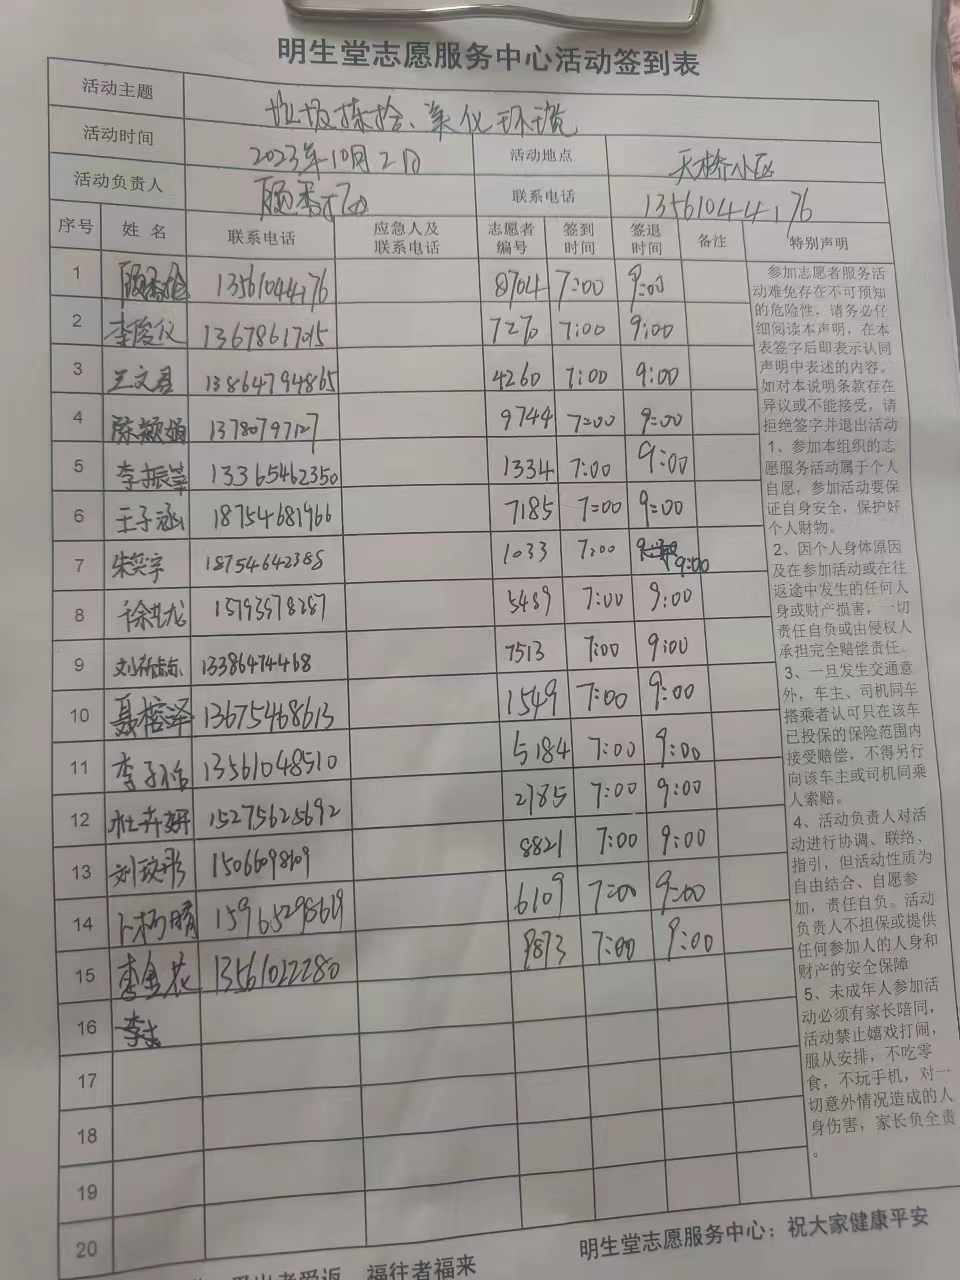 明生堂志愿服务中心活动签到表
活动主题 垃圾拣拾、美化环境
活动时间 2023年10月2日 活动地点 天桥小区
活动负责人 联系电话 13561044176
序号 姓名 联系电话 应急人及联系电话 志愿者编号 签到时间 签退时间 备注 特别声明
1 13561044176 8704 7:00 9:00
2 李俊仪 13678617015 7270 7:00 9:00
3 王文君 13864794865 4260 7:00 9:00
4 陈颖娟 13780797127 9744 7:00 9:00
5 李振華 13365462350 1334 7:00 9:00
6 王子涵 18754681966 7185 7:00 9:00
7 朱笑宇 18754642388 1033 7:00 9:00
8 徐世龙 15793578287 5489 7:00 9:00
9 13386474468 7513 7:00 9:00
10 聂榕泽 13675468613 1549 7:00 9:00
11 李子怡 13561048510 5184 7:00 9:00
12 杜卉妍 15275625692 2785 7:00 9:00
13 刘玟彤 15066098109 8821 7:00 9:00
14 卜杨晴 15965298619 6109 7:00 9:00
15 李金花 13561022280 9873 7:00 9:00
16
17
18
19
20
参加志愿者服务活
动难免存在不可预知
的危险性，请务必仔
细阅读本声明，在本
表签字后即表示认同
声明中表述的内容。
如对本说明条款存在
异议或不能接受，请
拒绝签字并退出活动
1、参加本组织的志
愿服务活动属于个人
自愿，参加活动要保
证自身安全，保护好
个人财物。
2、因个人身体原因
及在参加活动或在往
返途中发生的任何人
身或财产损害，一切
责任自负或由侵权人
承担完全赔偿责任。
3、一旦发生交通意
外，车主、司机同车
搭乘者认可只在该车
已投保的保险范围内
接受赔偿，不得另行
向该车主或司机同乘
人索赔。
4、活动负责人对活
动进行协调、联络、
指引，但活动性质为
自由结合、自愿参
加，责任自负。活动
负责人不担保或提供
任何参加人的人身和
财产的安全保障
5、未成年人参加活
动必须有家长陪同，
活动禁止嬉戏打闹，
服从安排，不吃零
食，不玩手机，对一
切意外情况造成的人
身伤害，家长负全责
。
爱出者爱返 福往者福来 明生堂志愿服务中心：祝大家健康平安